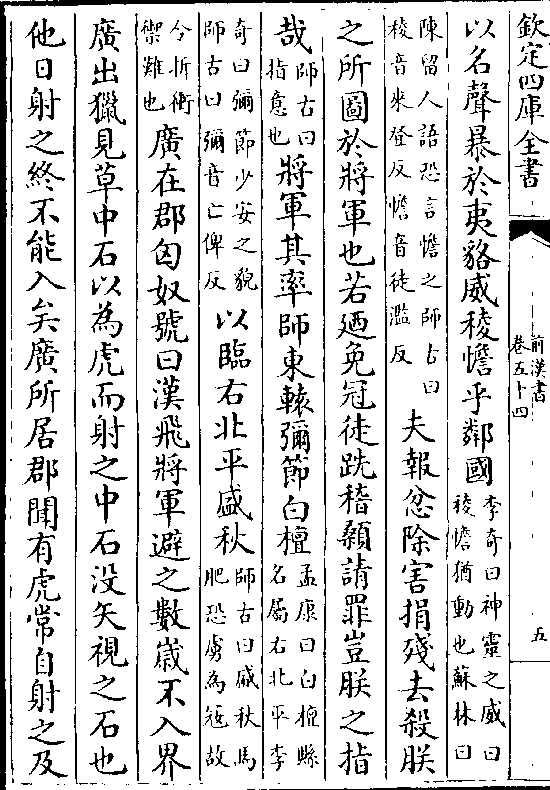 欽定四庫全書
前漢書
卷五十四
五
以名聲暴於夷貉威稜憺乎鄰國李奇曰神靈之威曰稜憺猶動也蘇林曰
陳留人語恐言憺之師古曰稜音來登反憺音徒濫反夫報忿除害捐殘去殺朕
之所圖於將軍也若廼免冠徒跣稽顙請罪豈朕之指
哉師古曰指意也將軍其率師東轅彌節白檀孟康曰白檀縣名屬右北平李
奇曰彌節少安之貌師古曰彌音亡俾反以臨右北平盛秋師古曰盛秋馬肥恐虜為冦故
令折衝禦難也廣在郡匈奴號曰漢飛將軍避之數嵗不入界
廣出獵見草中石以為虎而射之中石没矢視之石也
他日射之終不能入矣廣所居郡聞有虎常自射之及